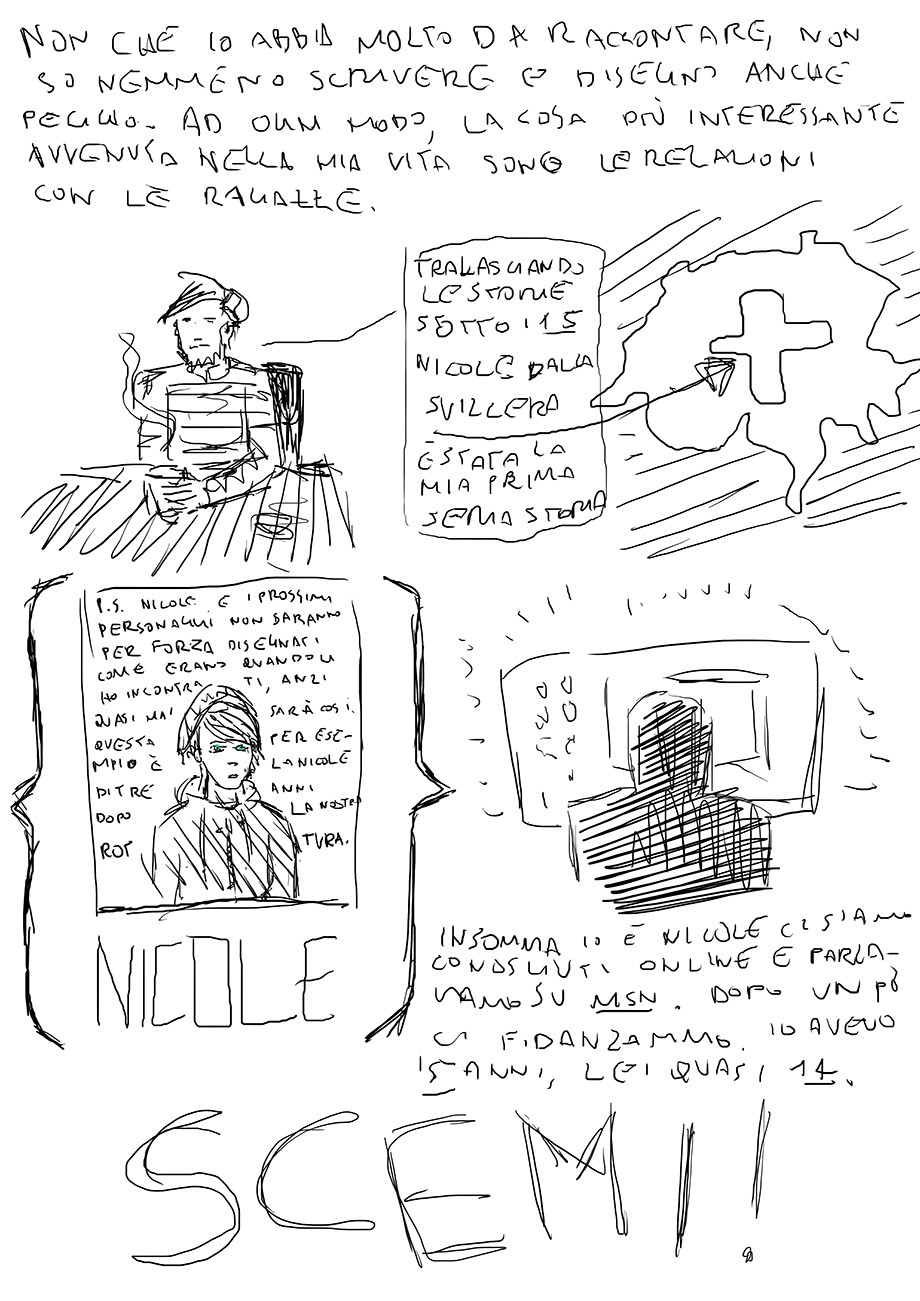 NON CHE IO ABBIA MOLTO DA RACCONTARE, NON
SO NEMMENO SCRIVERE E DISEGNO ANCHE
PEGGIO. AD OGNI MODO, LA COSA PIÙ INTERESSANTE
AVVENUTA NELLA MIA VITA SONO LE RELAZIONI
CON LE RAGAZZE.
TRALASCIANDO
LE STORIE
SOTTO I 15
NICOLE DALLA
SVIZZERA
È STATA LA
MIA PRIMA
SERIA STORIA
P.S. NICOLE E I PROSSIMI
PERSONAGGI NON SARANNO
PER FORZA DISEGNATI
COME ERANO QUANDO LI
HO INCONTRATI, ANZI
QUASI MAI SARÀ COSÌ.
QUESTA PER ESE-
MPIO È LA NICOLE
DI TRE ANNI
DOPO LA NOSTRA
ROTTURA.
NICOLE
INSOMMA IO E NICOLE CI SIAMO
CONOSCIUTI ONLINE E PARLA-
VAMO SU MSN. DOPO UN PÒ
CI FIDANZAMMO. IO AVEVO
15 ANNI, LEI QUASI 14.
SCEMI!